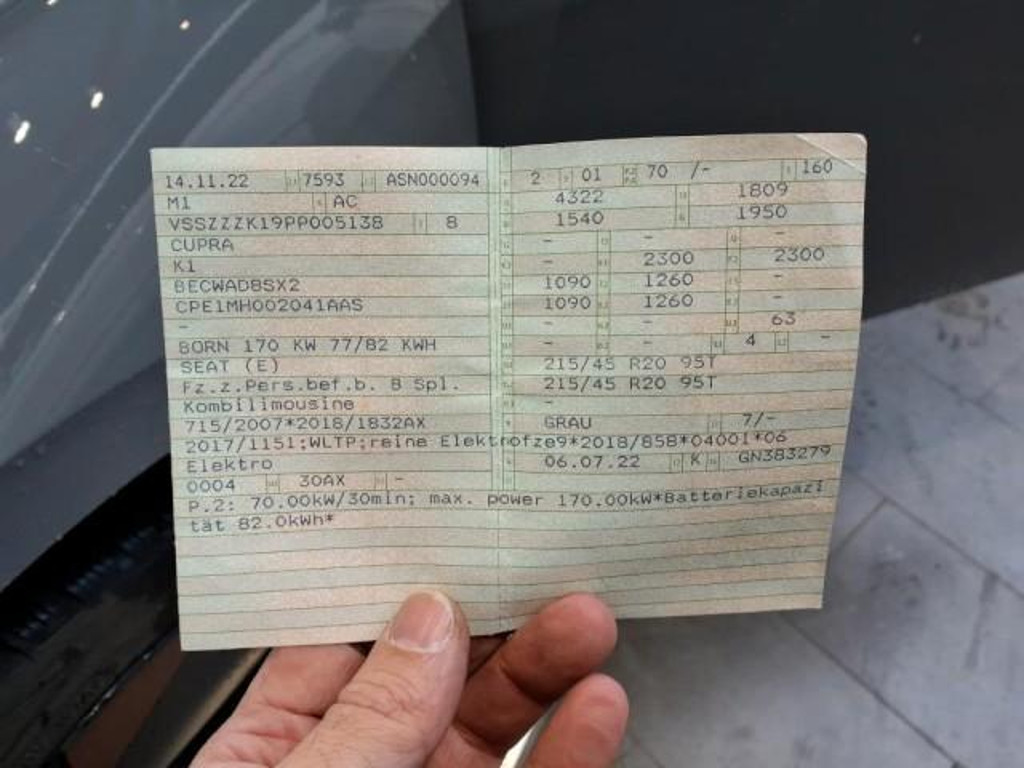 14.11.22 7593 ASN000094
M1 AC
VSSZZZK19PP005138 8
CUPRA
K1
BECWADBSX2
CPE1MH002041AAS
-
BORN 170 KW 77/82 KWH
SEAT (E)
Fz.z.Pers.bef.b. 8 Spl.
Kombilimousine
715/2007*2018/1832AX
2017/1151;WLTP;reine Elektrofz
Elektro
0004 30AX -
2 01 70 /- 160
4322 1809
1540 1950
- - -
- 2300 2300
1090 1260
1090 1260
- - 63
- - 4 -
215/45 R20 95T
215/45 R20 95T
-
GRAU 7/-
e9*2018/858*04001*06
06.07.22 K GN383279
P.2: 70.00kW/30min; max. power 170.00kW*Batteriekapazi
tät 82.0kWh*